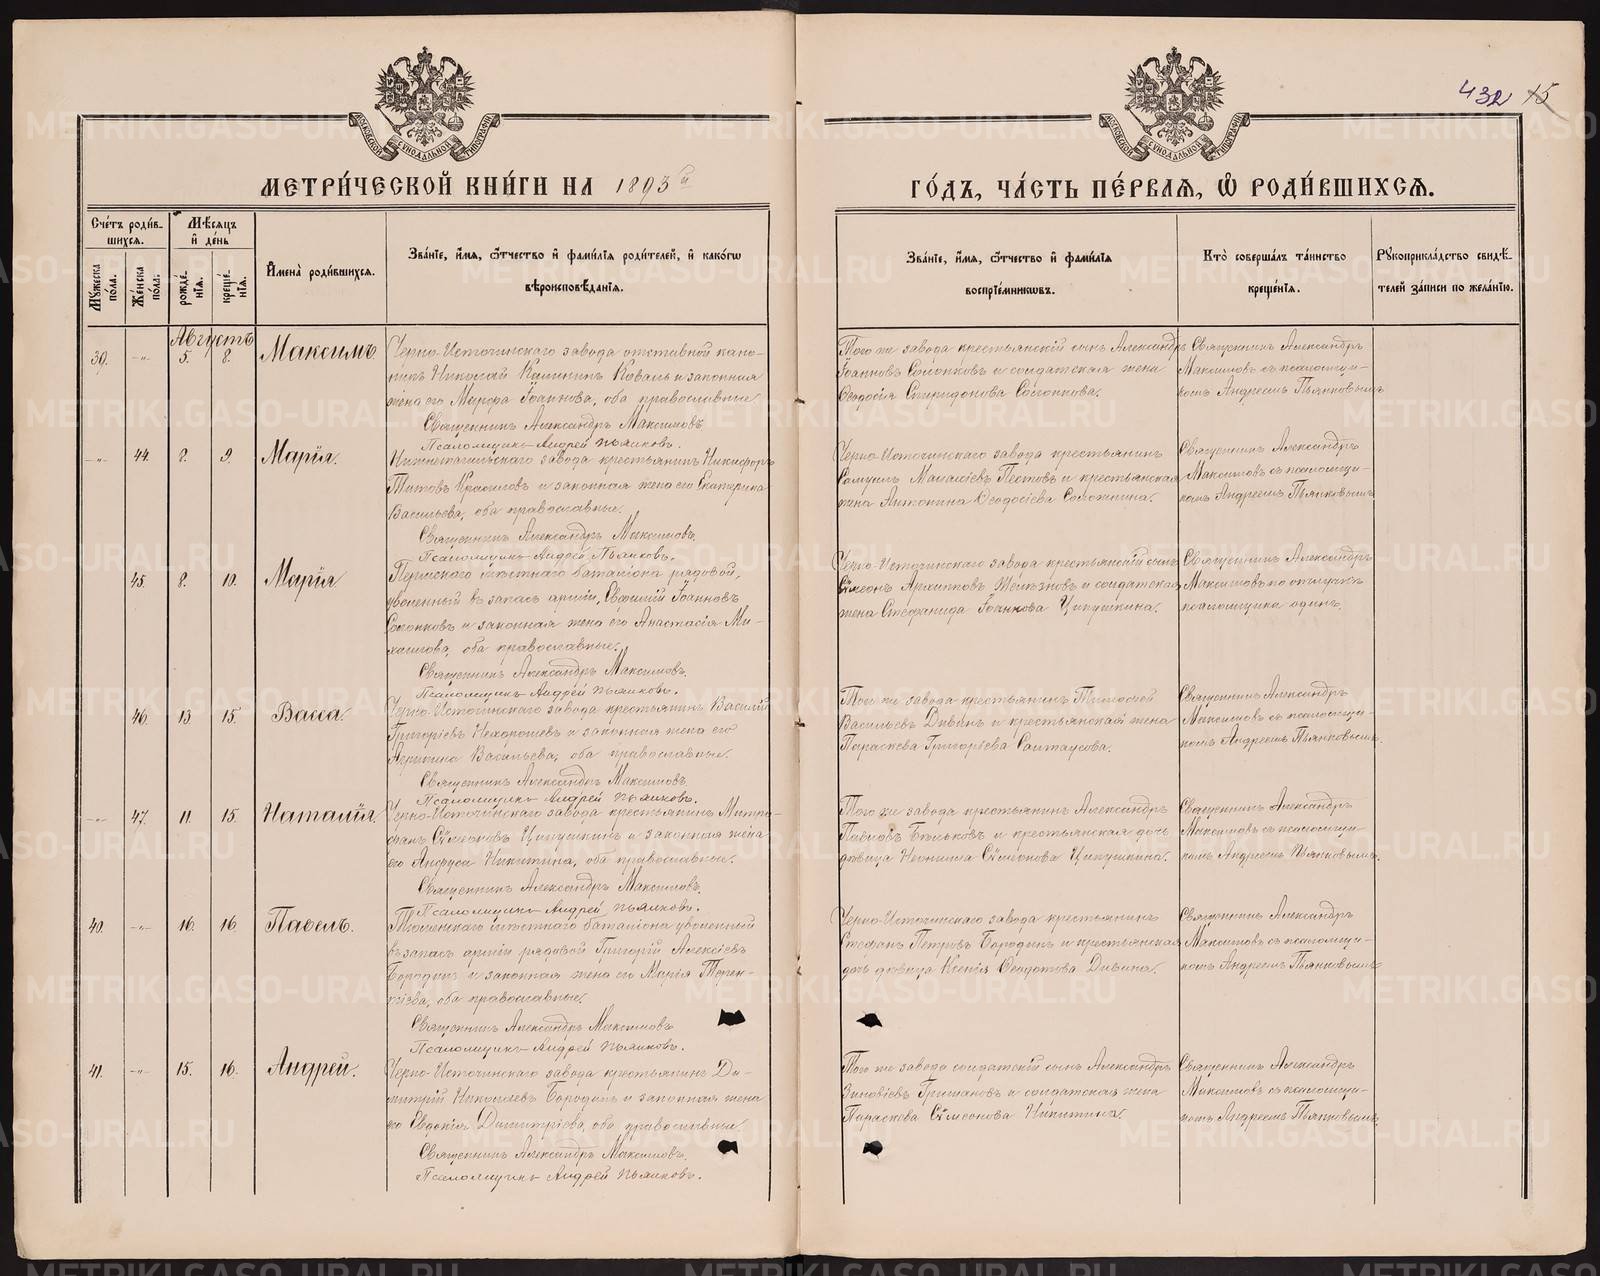 432 15
МЕТРИ́ЧЕСКОЙ КНИ́ГИ НА 1893й
ГО́ДЪ, ЧА́СТЬ ПЕ́РВАЯ, Ѡ҆ РОДИ́ВШИХСѦ.
Сче́тъ роди́в-
шихсѧ.
Мѣ́сѧцъ
и҆ де́нь
Мꙋ́жеска
по́ла.
Же́нска
по́ла.
рожде́-
нїѧ.
креще́-
нїѧ.
И҆мена̀ роди́вшихсѧ.
Зва́нїе, и҆́мѧ, ѻ҆́тчество и҆ фами́лїѧ роди́телей, и҆ како́гѡ
вѣроисповѣ́данїѧ.
Зва́нїе, и҆́мѧ, ѻ҆́тчество и҆ фами́лїѧ
воспрїе́мникѡвъ.
Кто̀ соверша́лъ та́инство
креще́нїѧ.
Рꙋкоприкла́дство свидѣ́-
телей за́писи по жела́нїю.
Августъ
39. -"- 5. 8. Максимъ
Черно-Источинскаго завода отставной кано-
ниръ Николай Калинин Коваль и законная
жена его Марфа Іоаннова, оба православные
Священникъ Александръ Максимовъ
Псаломщикъ Андрей Пьянковъ.
Того же завода крестьянскій сынъ Александръ
Іоанновъ Солонковъ и солдатская жена
Феодосія Спиридонова Солонкова.
Священникъ Александръ
Максимовъ съ псаломщи-
комъ Андреемъ Пьянковымъ
-"- 44. 8. 9. Марія.
Нижнетагильскаго завода крестьянинъ Никифоръ
Титовъ и законная жена его Екатерина
Васильева, оба православные.
Священникъ Александръ Максимовъ
Псаломщикъ Андрей Пьянковъ.
Черно-Источинскаго завода крестьянинъ
Самуилъ и крестьянская
жена Антонина Феодосіева
Священникъ Александръ
Максимовъ съ псаломщи-
комъ Андреемъ Пьянковымъ
45. 8. 10. Марія
Пермскаго мѣстнаго баталіона рядовой,
уволенный въ запасъ арміи, Евфимій Іоанновъ
Солонковъ и законная жена его Анастасія Ми-
хаилова, оба православные.
Священникъ Александръ Максимовъ.
Псаломщикъ Андрей Пьянковъ.
Черно-Источинскаго завода крестьянскій сынъ
Сѷмеонъ Архиповъ и солдатская
жена Стефанида Іоаннова Ципушкина.
Священникъ Александръ
Максимовъ по отлучкѣ
псаломщика одинъ.
46. 13 15. Васса.
Черно-Источинскаго завода крестьянинъ Василій
Григоріевъ и законная жена его
Васильева, оба православные.
Священникъ Александръ Максимовъ
Псаломщикъ Андрей Пьянковъ.
Того же завода крестьянинъ Тимофей
Васильевъ Дивинъ и крестьянская жена
Параскева Григоріева
Священникъ Александръ
Максимовъ съ псаломщи-
комъ Андреемъ Пьянковымъ.
-"- 47. 11. 15. Наталія.
Черно-Источинскаго завода крестьянинъ Митро-
фанъ Сѷмеоновъ Ципушкинъ и законная жена
его Никитина, оба православные.
Священникъ Александръ Максимовъ.
Псаломщикъ Андрей Пьянковъ.
Того же завода крестьянинъ Александръ
Павловъ и крестьянская дочь
дѣвица Неонила Сѷмеонова Ципушкина.
Священникъ Александръ
Максимовъ съ псаломщи-
комъ Андреемъ Пьянковымъ.
40. -"- 16. 16. Павелъ.
Тюменскаго мѣстнаго баталіона уволенный
въ запасъ арміи рядовой Григорій Алексіевъ
Бородинъ и законная жена его Марія Терен-
тіева, оба православные.
Священникъ Александръ Максимовъ
Псаломщикъ Андрей Пьянковъ.
Черно-Источинскаго завода крестьянинъ
Стефанъ Петровъ Бородинъ и крестьянская
дочь дѣвица Ксенія Феодотова Дивина.
Священникъ Александръ
Максимовъ съ псаломщи-
комъ Андреемъ Пьянковымъ
41. -"- 15. 16. Андрей.
Черно-Источинскаго завода крестьянинъ Ди-
митрій Николаевъ Бородинъ и законная жена
его Евдокія Димитріева, оба православные
Священникъ Александръ Максимовъ.
Псаломщикъ Андрей Пьянковъ.
Того же завода солдатскій сынъ Александръ
Зиновіевъ и солдатская жена
Параскева Сѷмеонова Никитина.
Священникъ Александръ
Максимовъ съ псаломщи-
комъ Андреемъ Пьянковымъ.
METRIKI.GASO-URAL.RU